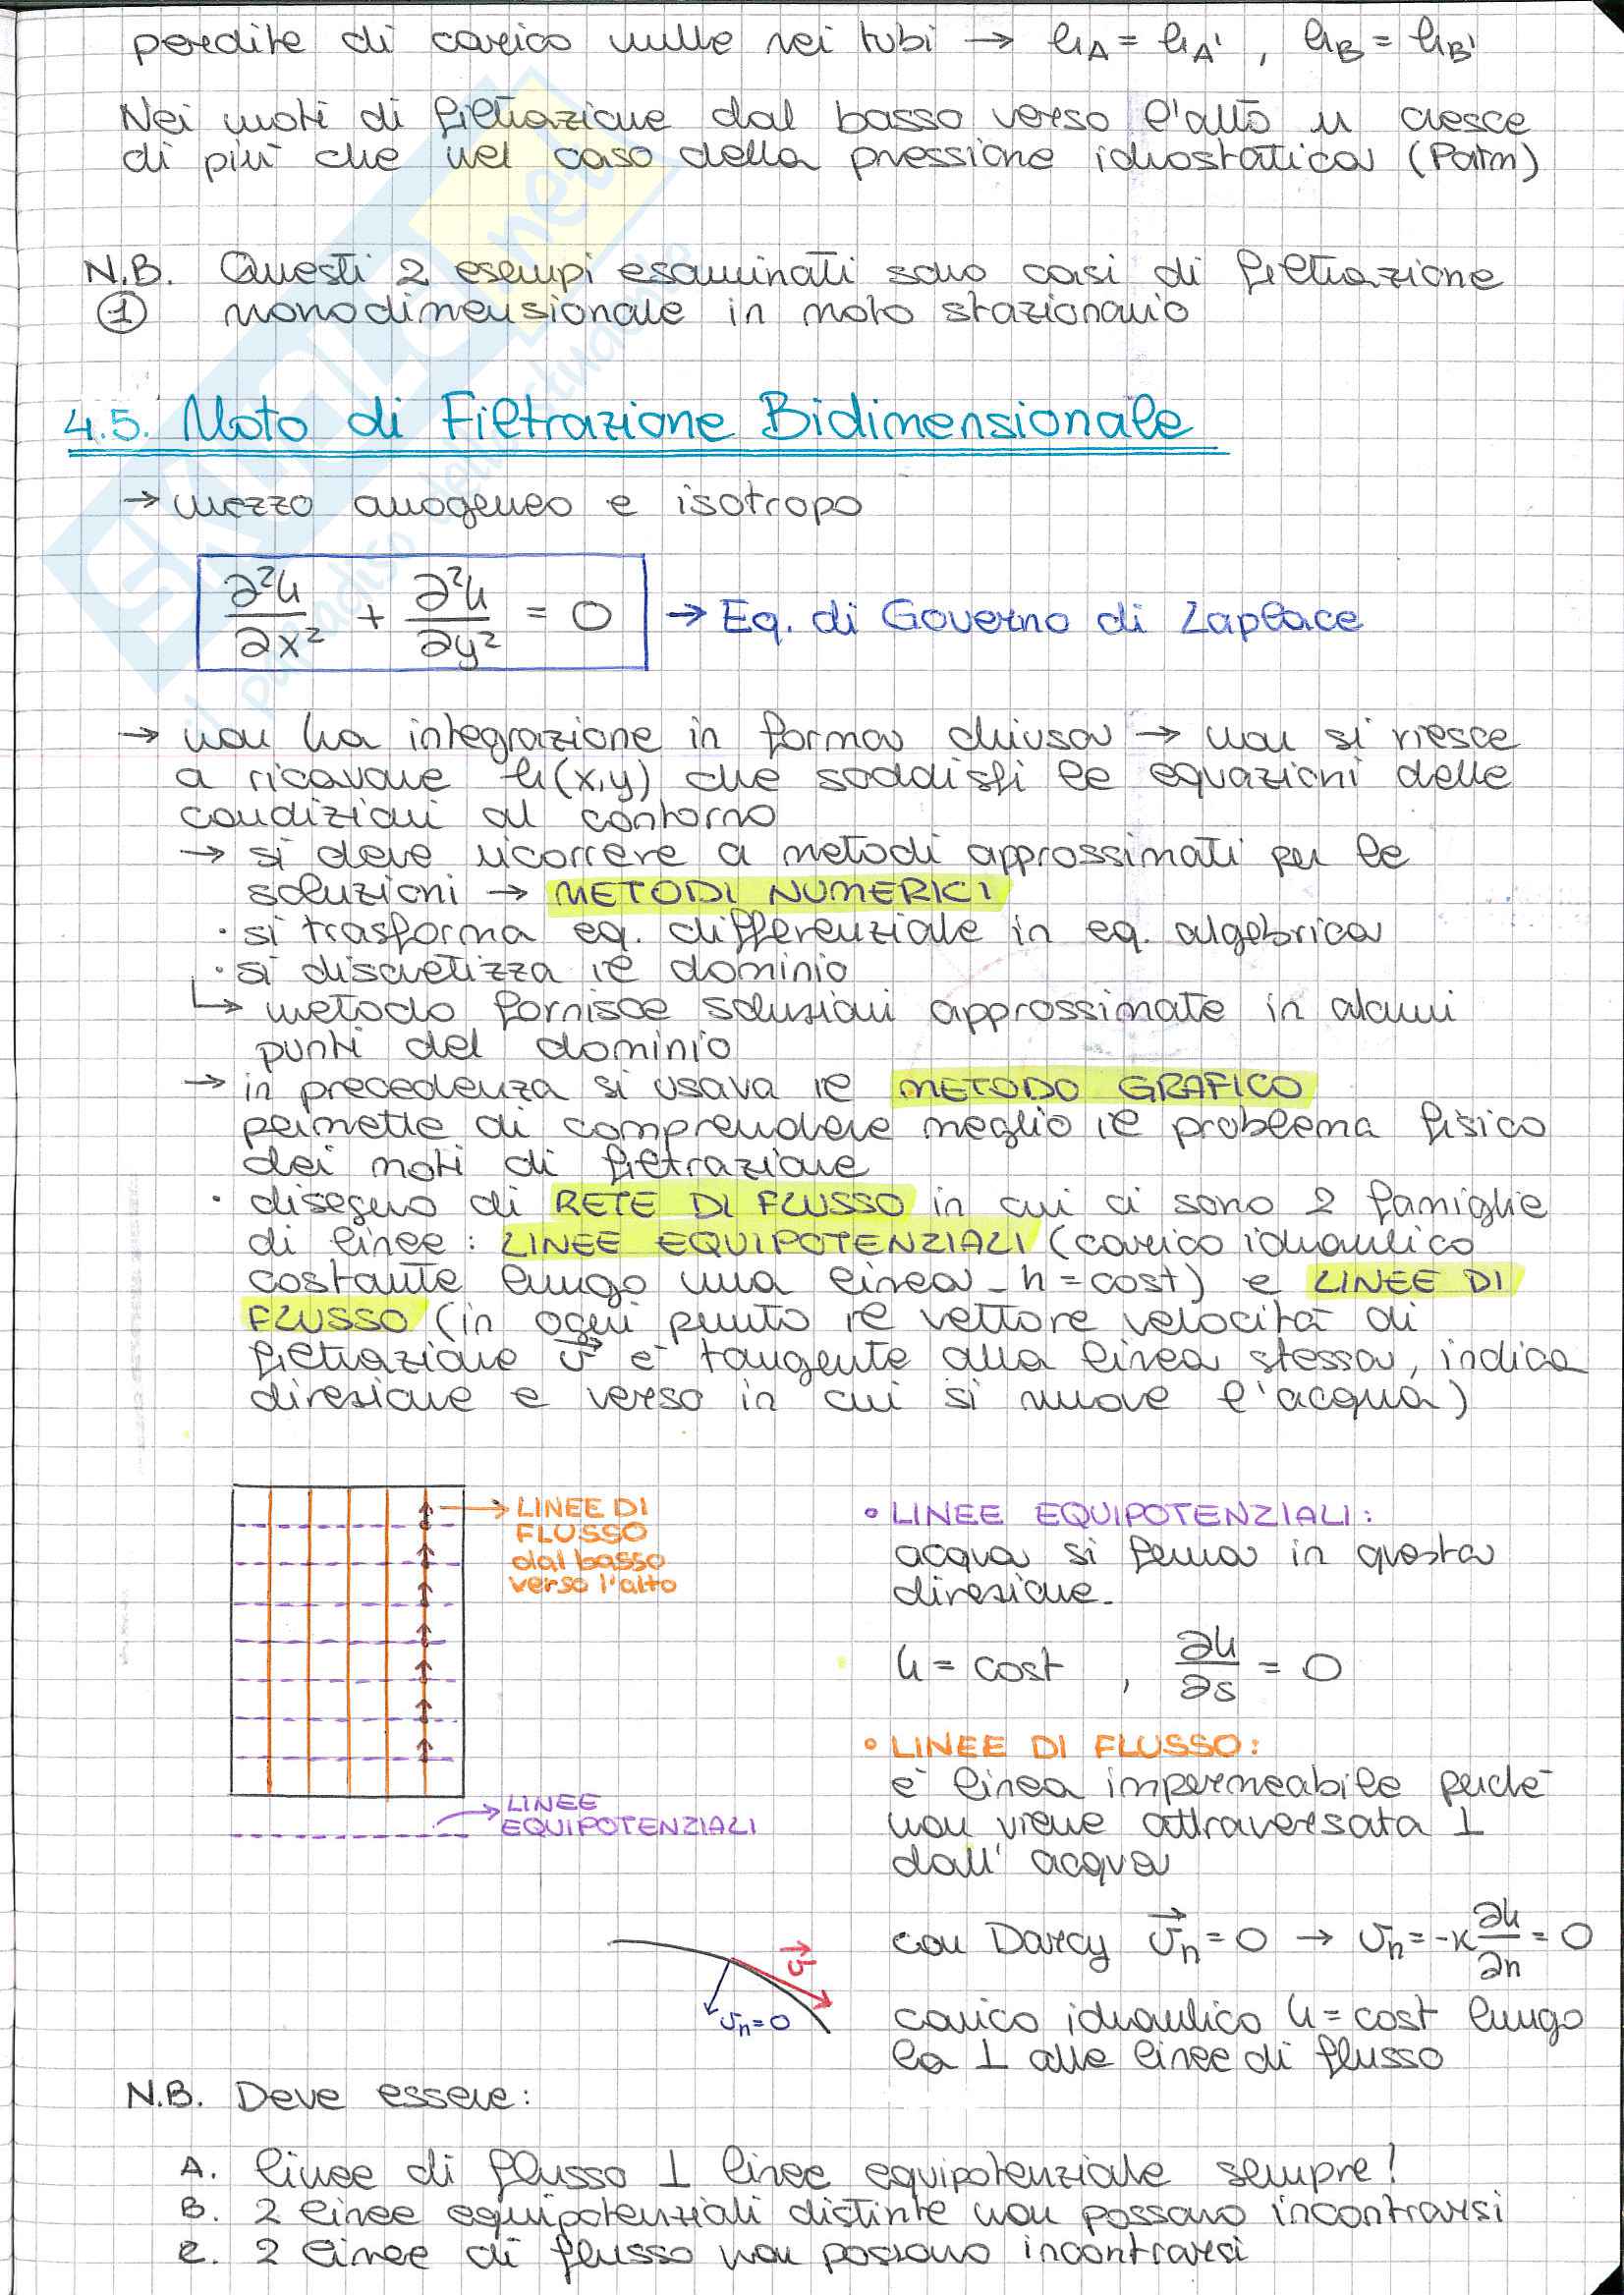 perdite di carico nulle nei tubi → hA = hA' , hB = hB'
Nei moti di filtrazione dal basso verso l'alto u cresce
di più che nel caso della pressione idrostatica (Patm)
N.B. Questi 2 esempi esaminati sono casi di filtrazione
① monodimensionale in moto stazionario
4.5. Moto di Filtrazione Bidimensionale
→ mezzo omogeneo e isotropo
∂²h/∂x² + ∂²h/∂y² = 0 → Eq. di Governo di Laplace
→ non ha integrazione in forma chiusa → non si riesce
a ricavare h(x,y) che soddisfi le equazioni delle
condizioni al contorno
→ si deve ricorrere a metodi approssimati per le
soluzioni → METODI NUMERICI
· si trasforma eq. differenziale in eq. algebrica
· si discretizza il dominio
↳ metodo fornisce soluzioni approssimate in alcuni
punti del dominio
→ in precedenza si usava il METODO GRAFICO
permette di comprendere meglio il problema fisico
dei moti di filtrazione
· disegno di RETE DI FLUSSO in cui ci sono 2 famiglie
di linee : LINEE EQUIPOTENZIALI (carico idraulico
costante lungo una linea - h = cost) e LINEE DI
FLUSSO (in ogni punto il vettore velocità di
filtrazione v⃗ è tangente alla linea stessa, indica
direzione e verso in cui si muove l'acqua)
LINEE DI
FLUSSO
dal basso
verso l'alto
LINEE
EQUIPOTENZIALI
• LINEE EQUIPOTENZIALI :
acqua si ferma in questa
direzione.
h = cost , ∂h/∂s = 0
• LINEE DI FLUSSO :
è linea impermeabile perché
non viene attraversata ⊥
dall' acqua
con Darcy v⃗n = 0 → vn = -K ∂h/∂n = 0
v⃗
vn = 0
carico idraulico h = cost lungo
la ⊥ alle linee di flusso
N.B. Deve essere :
A. linee di flusso ⊥ linee equipotenziale sempre!
B. 2 linee equipotenziali distinte non possono incontrarsi
C. 2 linee di flusso non possono incontrarsi